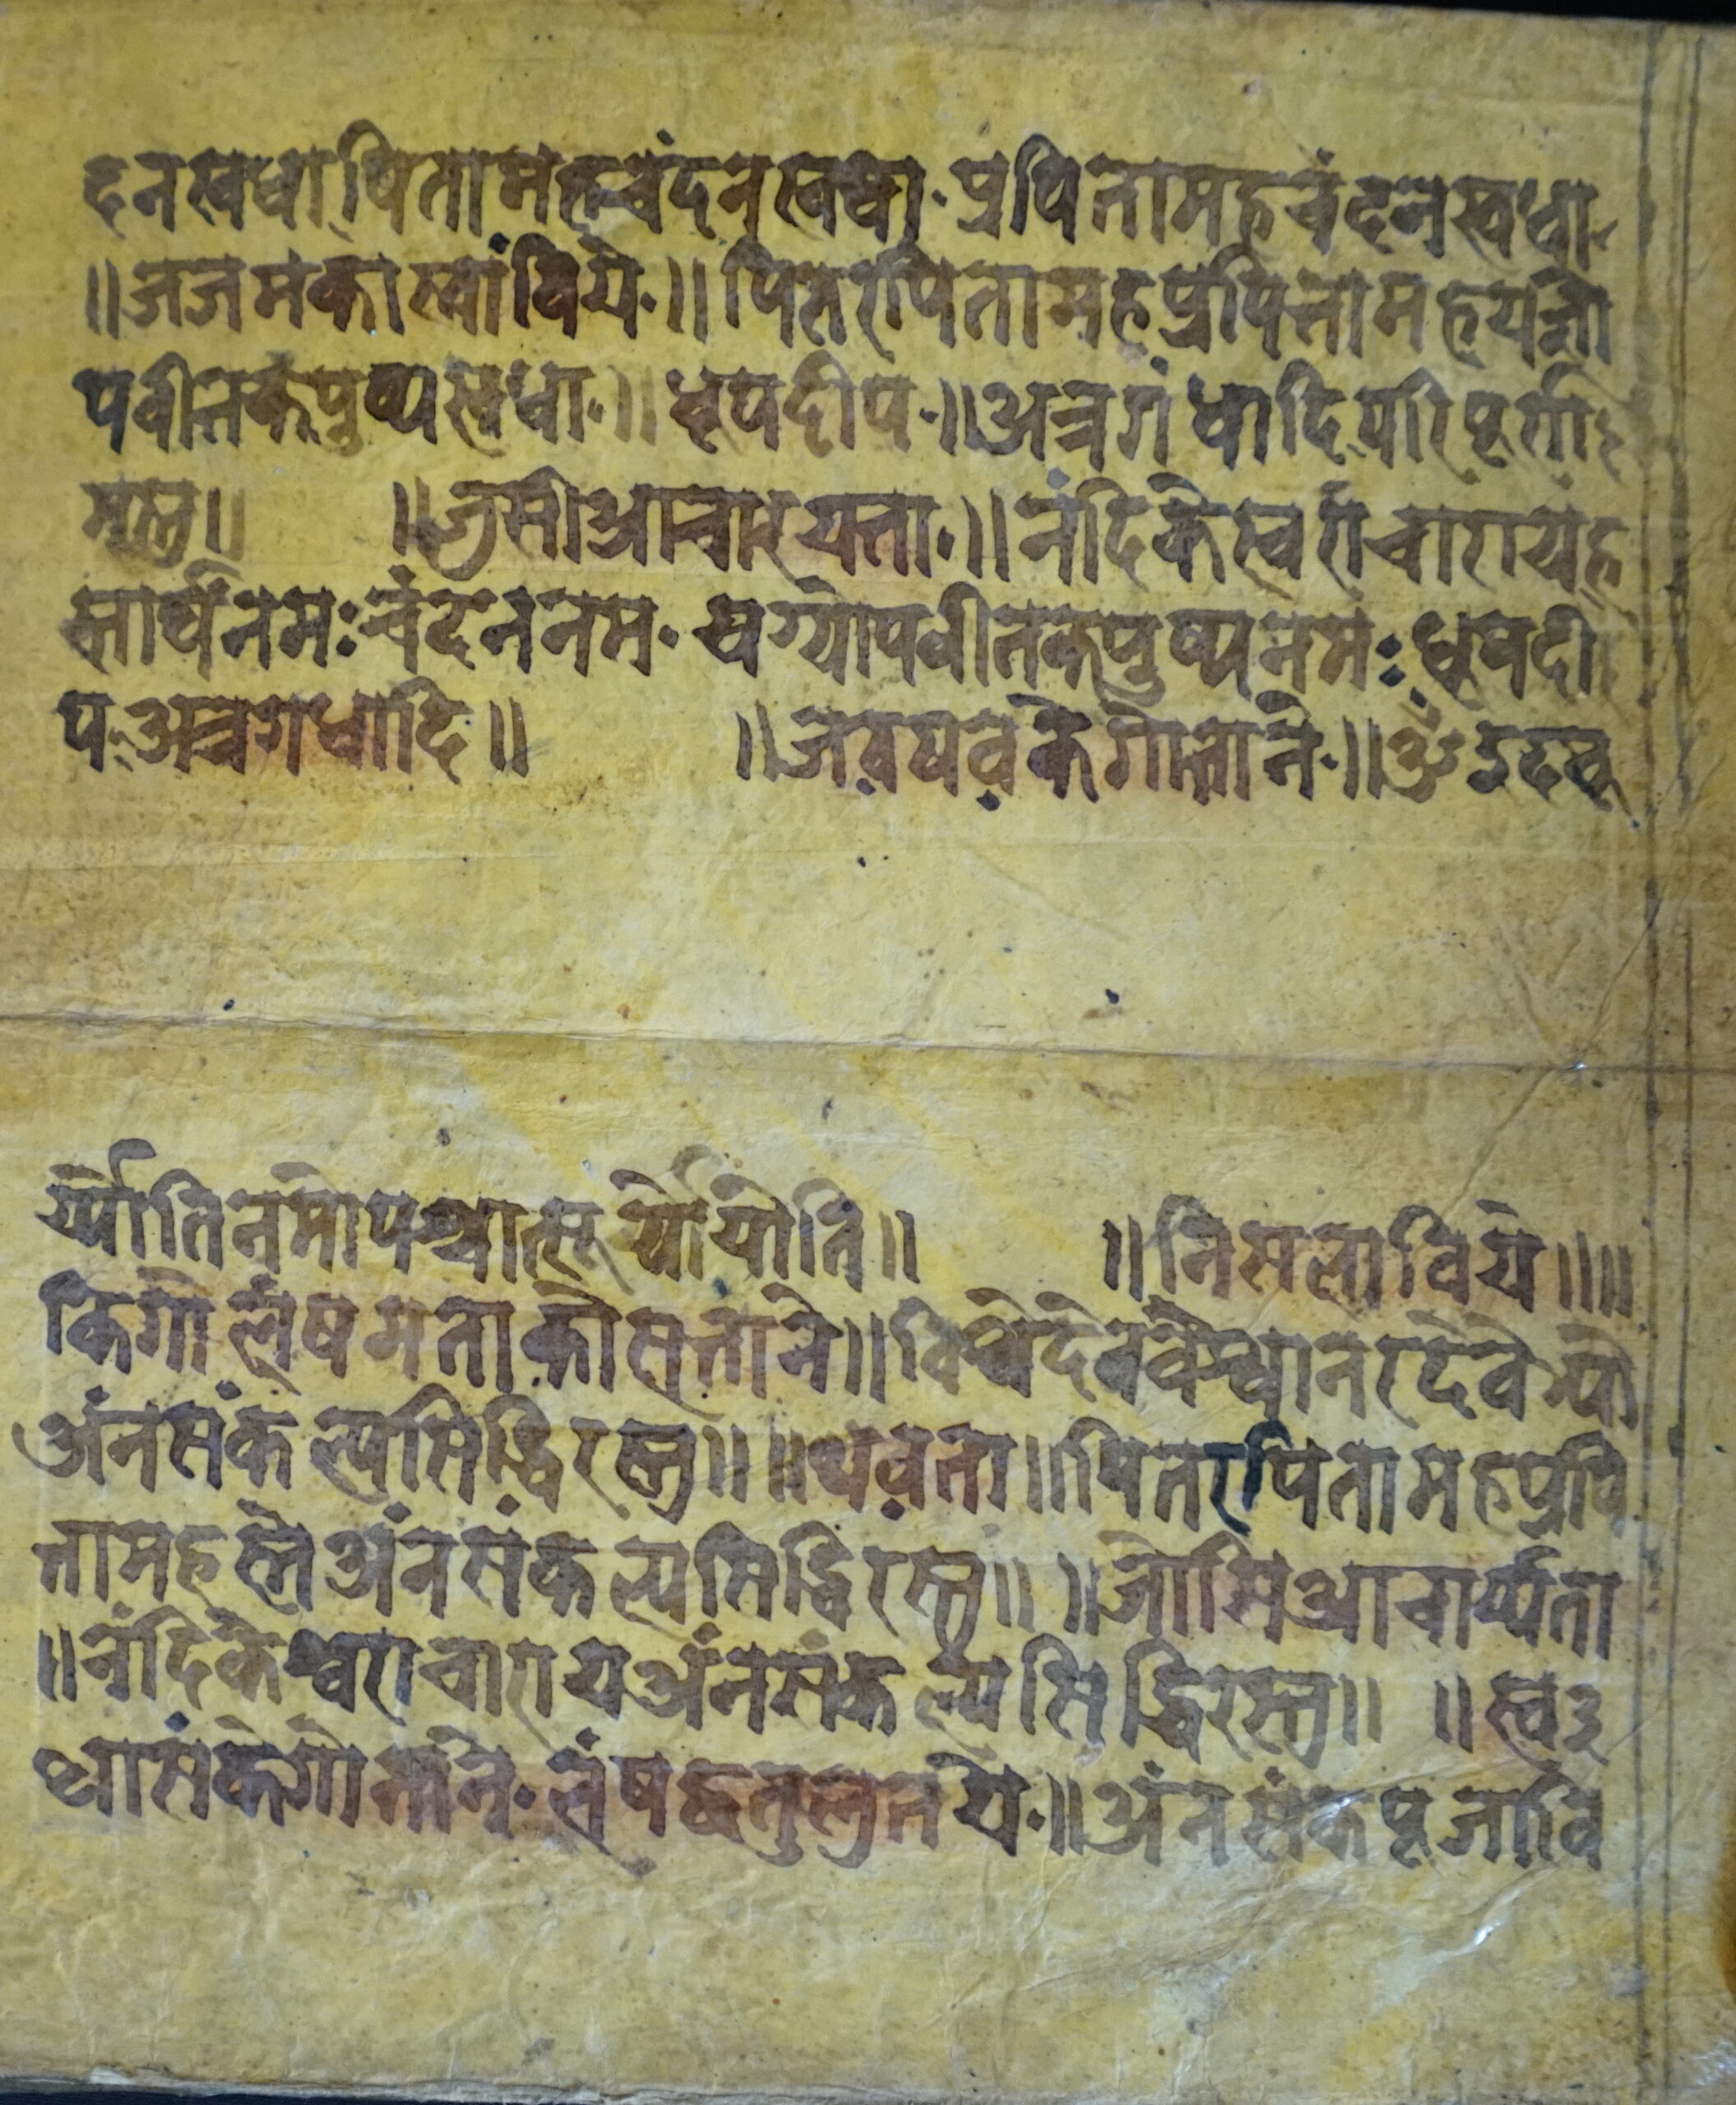 दनस्वधा पितामहचंदनस्वधा॰ प्रपितामहचंदनस्वधा॰
॥जजमकास्वांविये॰॥ पितरपितामहप्रपितामहयज्ञो
पवीतकंपुष्पस्वधा॰॥ धूपदीप॰॥अत्रगंधादिपरिपूर्ता
मस्तु॥ ॥जुसीआचारयत्ता॰॥ नंदिकेस्वराचारायह
सार्घनमः चंदननम॰ यग्योपवीतकंपुष्पनमः धूपदी
प॰अत्रगधादि॥ ॥जवषवकेगोत्ताने॰॥ॐ
र्य्योतिनमोपश्चात्सूर्य्योयोति॥ ॥निसलाविये॥॥
किगोलंषमताकोसत्ताने॥ विश्वेदेववैस्वानरदेवेभ्यो
अंनसंकल्पसिद्धिरस्तु॥ ॥थवता॥ पितरपितामहप्रपि
तामहस्तै अंनसंकल्पसिद्धिरस्तु॥ ॥जोसिआचार्य्यता
॥नंदिकेश्वराचाराय अंनसंकल्पसिद्धिरस्तु॥ ॥स्व३
थासंकेगोत्ताने॰ लंषद्धतुलुतये॰॥ अंनसंकपूजावि